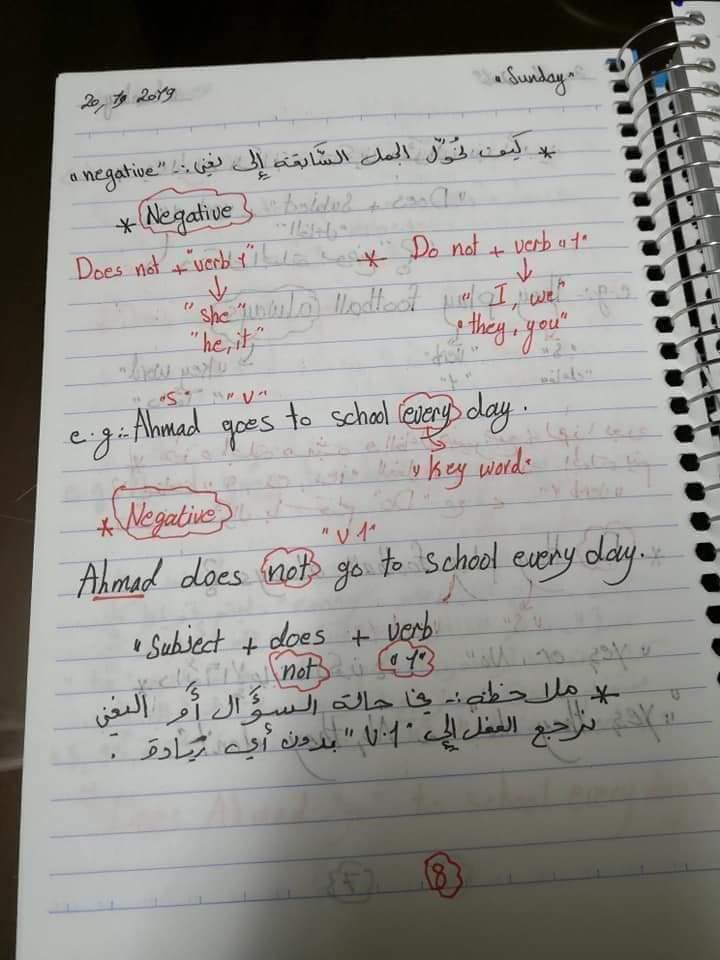 20, 2019 "Sunday"
* كيف نحوّل الجمل السَّابقة إلى نفي :. "negative"
* Negative
Does not + "verb 1" * Do not + verb "1"
"she" "I, we"
"he, it" "they, you"
"S" "V"
e.g:. Ahmad goes to school every day.
"key word"
* Negative
"V 1"
Ahmad does not go to school every day.
"Subject + does + verb
not "1"
* ملاحظة :. في حالة السؤال أو النفي
نرجع الفعل إلى "V.1" بدون أي زيادة .
8